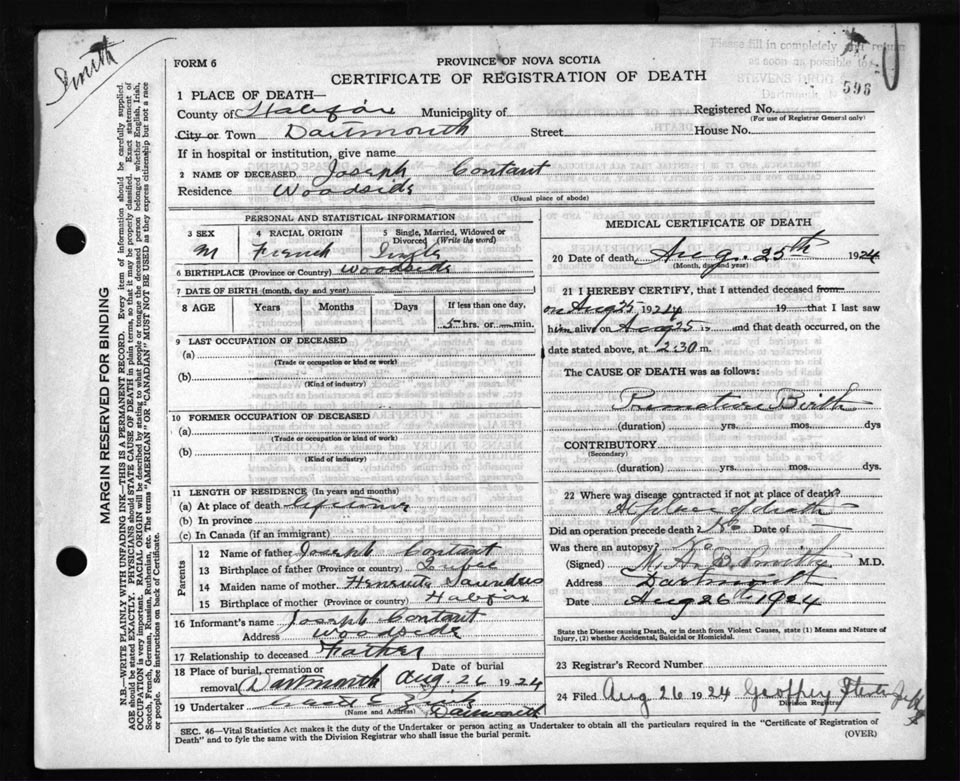 Smith
Please fill in completely and return
as soon as possible to
598
FORM 6
PROVINCE OF NOVA SCOTIA
CERTIFICATE OF REGISTRATION OF DEATH
1 PLACE OF DEATH—
County of Halifax Municipality of Registered No.
(For use of Registrar General only)
City or Town Dartmouth Street House No.
If in hospital or institution, give name
2 NAME OF DECEASED Joseph Contant
Residence Woodside
(Usual place of abode)
PERSONAL AND STATISTICAL INFORMATION
3 SEX 4 RACIAL ORIGIN 5 Single, Married, Widowed or Divorced (Write the word)
M French Single
6 BIRTHPLACE (Province or Country) Woodside
7 DATE OF BIRTH (month, day and year)
8 AGE Years Months Days If less than one day,
5 hrs. or min.
9 LAST OCCUPATION OF DECEASED
(a)
(Trade or occupation or kind or work)
(b)
(Kind of industry)
10 FORMER OCCUPATION OF DECEASED
(a)
(Trade or occupation or kind or work)
(b)
(Kind of industry)
11 LENGTH OF RESIDENCE (In years and months)
(a) At place of death lifetime
(b) In province
(c) In Canada (if an immigrant)
Parents
12 Name of father Joseph Contant
13 Birthplace of father (Province or country)
14 Maiden name of mother Henrietta Saunders
15 Birthplace of mother (Province or country) Halifax
16 Informant's name Joseph Contant
Address Woodside
17 Relationship to deceased Father
18 Place of burial, cremation or removal Dartmouth Date of burial Aug. 26 1924
19 Undertaker
(Name and Address) Dartmouth
MEDICAL CERTIFICATE OF DEATH
20 Date of death Aug. 25th 1924
(Month, day and year)
21 I HEREBY CERTIFY, that I attended deceased from
on Aug 25 1924 19 that I last saw
him alive on Aug 25 19 and that death occurred, on the
date stated above, at 2:30 m.
The CAUSE OF DEATH was as follows:
Premature Birth
(duration) yrs. mos. dys
CONTRIBUTORY
(Secondary)
(duration) yrs. mos. dys.
22 Where was disease contracted if not at place of death?
At place of death
Did an operation precede death? No Date of
Was there an autopsy? No
(Signed) Smith M.D.
Address Dartmouth
Date Aug 26th 1924
State the Disease causing Death, or in death from Violent Causes, state (1) Means and Nature of
Injury, (2) whether Accidental, Suicidal or Homicidal.
23 Registrar's Record Number
24 Filed Aug 26 1924 Geoffrey
Division Registrar
SEC. 46—Vital Statistics Act makes it the duty of the Undertaker or person acting as Undertaker to obtain all the particulars required in the "Certificate of Registration of
Death" and to fyle the same with the Division Registrar who shall issue the burial permit.
(OVER)
MARGIN RESERVED FOR BINDING
N.B.—WRITE PLAINLY WITH UNFADING INK—THIS IS A PERMANENT RECORD. Every item of information should be carefully supplied.
AGE should be stated EXACTLY. PHYSICIANS should STATE CAUSE OF DEATH in plain terms, so that it may be properly classified. Exact statement of
OCCUPATION is very important. RACIAL ORIGIN will be described by stating to what people or tongue the deceased person belonged whether English, Irish,
Scotch, French, German, Russian, Ruthenian, etc. The terms "AMERICAN" OR "CANADIAN" MUST NOT BE USED as they express citizenship but not a race
or people. See instructions on back of Certificate.